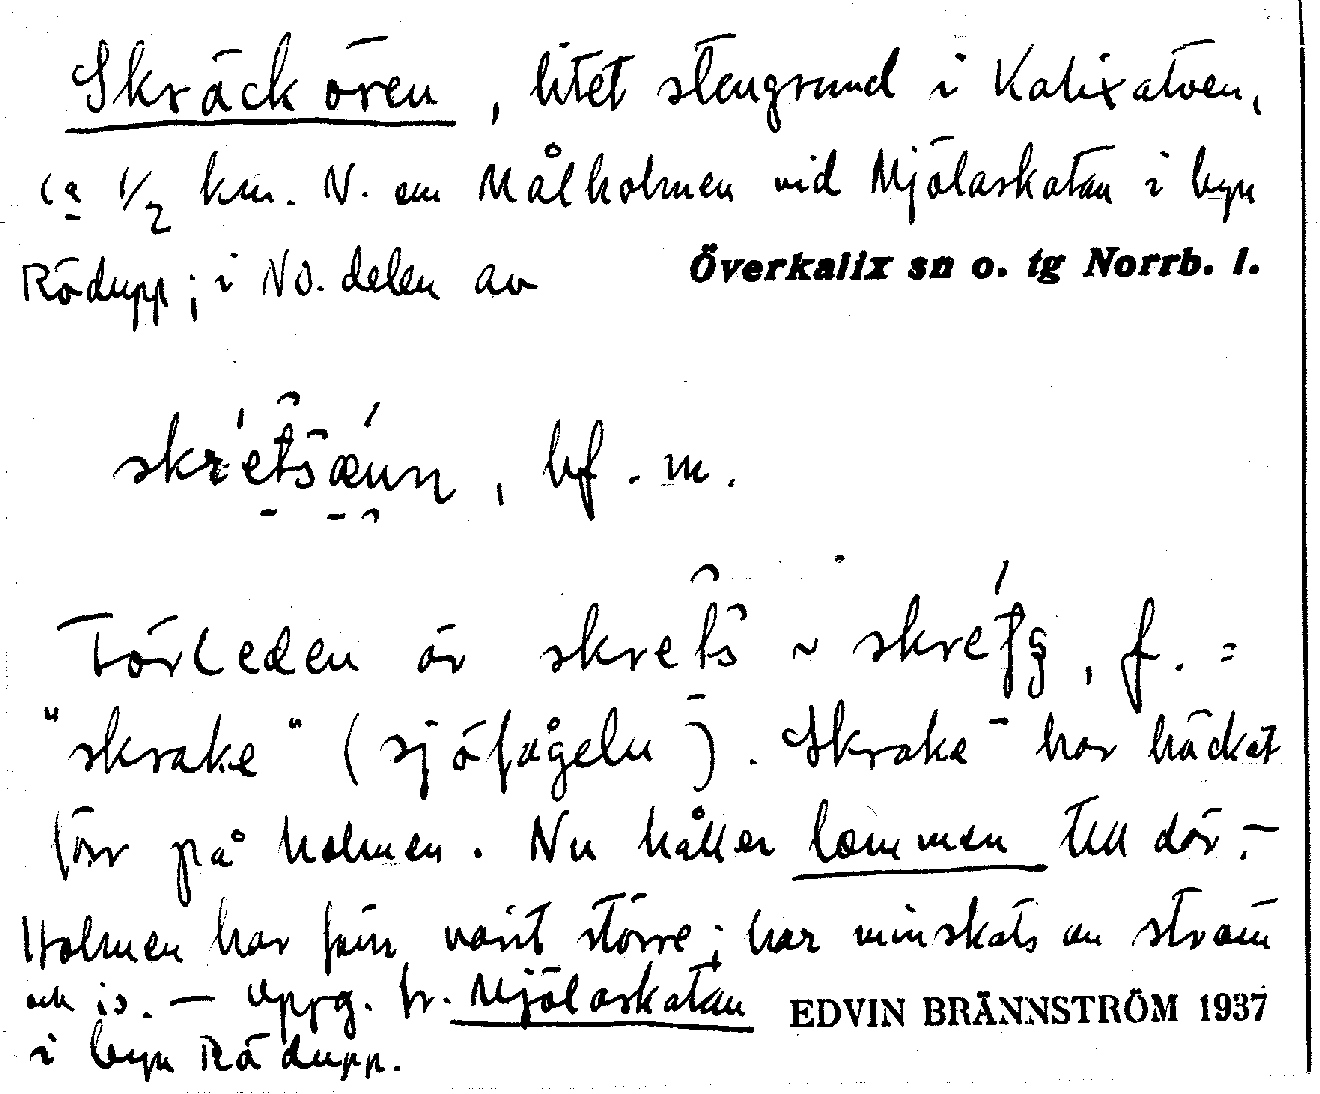 Skräckören, litet stengrund i Kalixälven,
ca 1/2 km. N. om Målholmen vid Mjölaskatan i byn
Rödupp; i NO. delen av Överkalix sn o. tg Norrb. l.
, bf. m.
Förleden är skretš ~ , f. =
"skrake" (sjöfågeln). Skrake har häckat
förr på holmen. Nu håller lommen till där. –
Holmen har förr varit större; har minskats av ström
och is. – Uppg. fr. Mjölaskatan EDVIN BRÄNNSTRÖM 1937
i byn Rödupp.